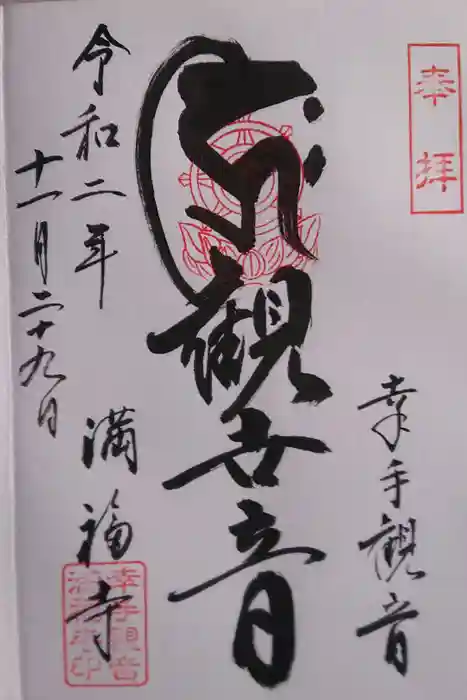 奉拝
幸手観音
観世音
令和二年
十一月二十九日
満福寺
幸手観音